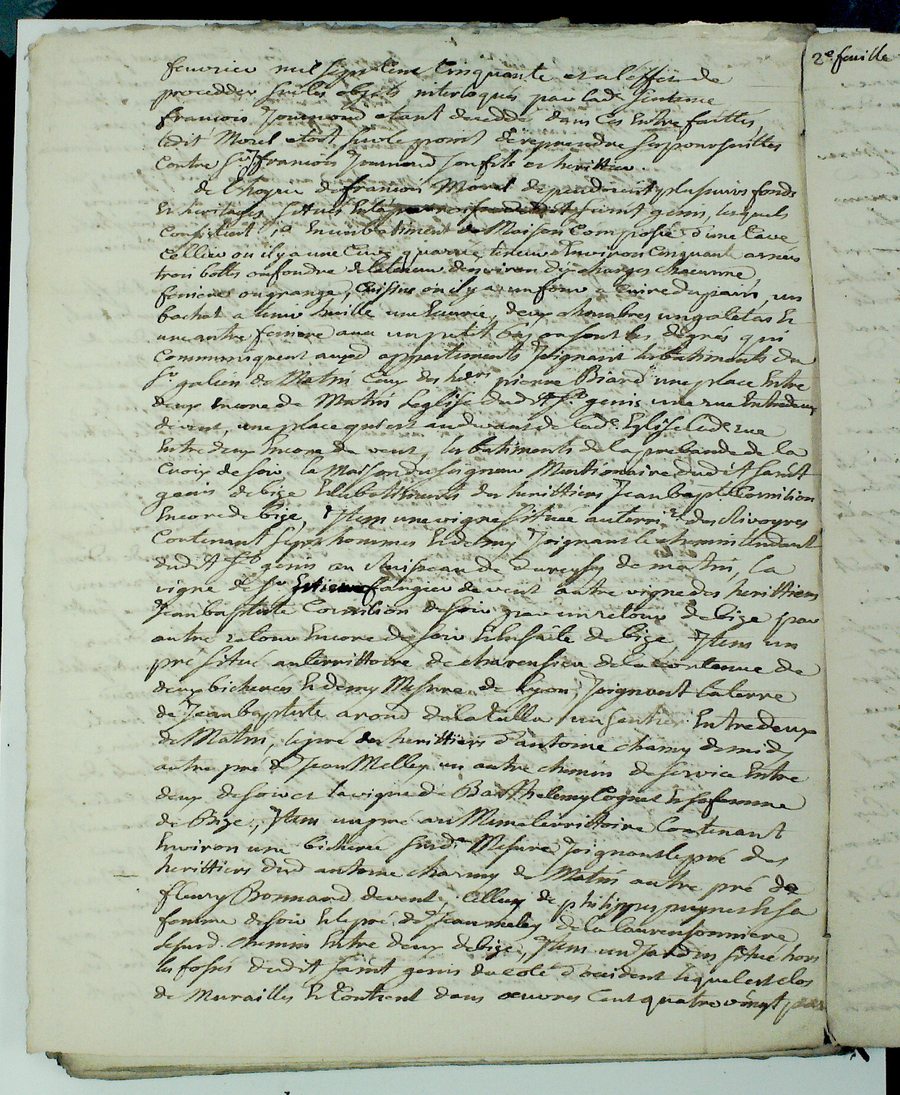 2e feuille
feuvrier mil sept cent Cinquante et a l'effet de
procedder sur les objets interloqués par lade Sentence
francois Journoud etant deceddé dans ces entrefaittes
ledit Morel etoit sur le point de reprendre ses poursuittes
Contre Sr francois Journoud son fils et herittier.
de l'hoyrie de francois Morel dependoient plusieurs fonds
et herittages situés saint genis, lesquels
Consistent 1o En un batiment de Maison Composé d'une Cave
Cellier ou il y a une Cuve quarrée teneur d'environ Cinquante asnées
trois botts onfondre de la teneur d'environ dix charges chacunne
feniere ou grange, Cuisine ou il y a un four a Cuire du pain, un
bachat a tenir huille une Ecurie, deux chambres un galetas et
une autre feniere avec un petit bas ou sont les degrés qui
Communiquent auxd appartements Joignant les batiments du
Sr galien de Matin Ceux des herrs pierre Biard une place Entre
deux encore de Matin L'eglise dudt St genis une rue Entredeux
de vent, une place qui est au devant de lade Eglise lade rue
Entre deux Encore de vent, les batiments de la prebande de la
Croix de soir la Maison du seigneur Mantionaire dudit saint
genis de bize Et les batiments des herittiers Jean bapte Cornilion
Encore de bize, Item une vigne situee au terrre des Rivoyres
Contenant sept hommes Et demy Joignant le chemin tendant
dudit St genis au Ruisseau de dureysy de matin, la
vigne de Sr Etienne fangier de vent autre vigne des herittiers
Jean baptiste Cornilion de soir par un retour de bize par
autre retour Encore de soir Et ensuite de bize, Item un
pré situé au territtoire de charensieu de la Contenue de
deux bicherees Et demy Mesure de Lyon, Joignant la terre
de Jean baptiste arond de la tulla un sentier Entredeux
de Matin, le pré des herittiers d'antoine charmy de midy
autre pré de Jean Melley un autre chemin de service Entre
deux de soir et la vigne de Barthelemy Cognet Et sa femme
de Bize, Item un pré au Meme territtoire Contenant
Environ une bicheree susde Mesure Joignant le pré des
herittiers dud antoine charmy de Matin autre pré de
fleury Bonnard de vent, Celluy de philippes et sa
femme de soir Et le pré de Jean meley de la laurensonniere
lesurd. chemin Entre deux de bize, Item un Jardin situé hors
les fossés dudit saint genis du coté d'occident lequel est clos
de Murailles Et Contient dans œuvres Cent quatre vingt pas